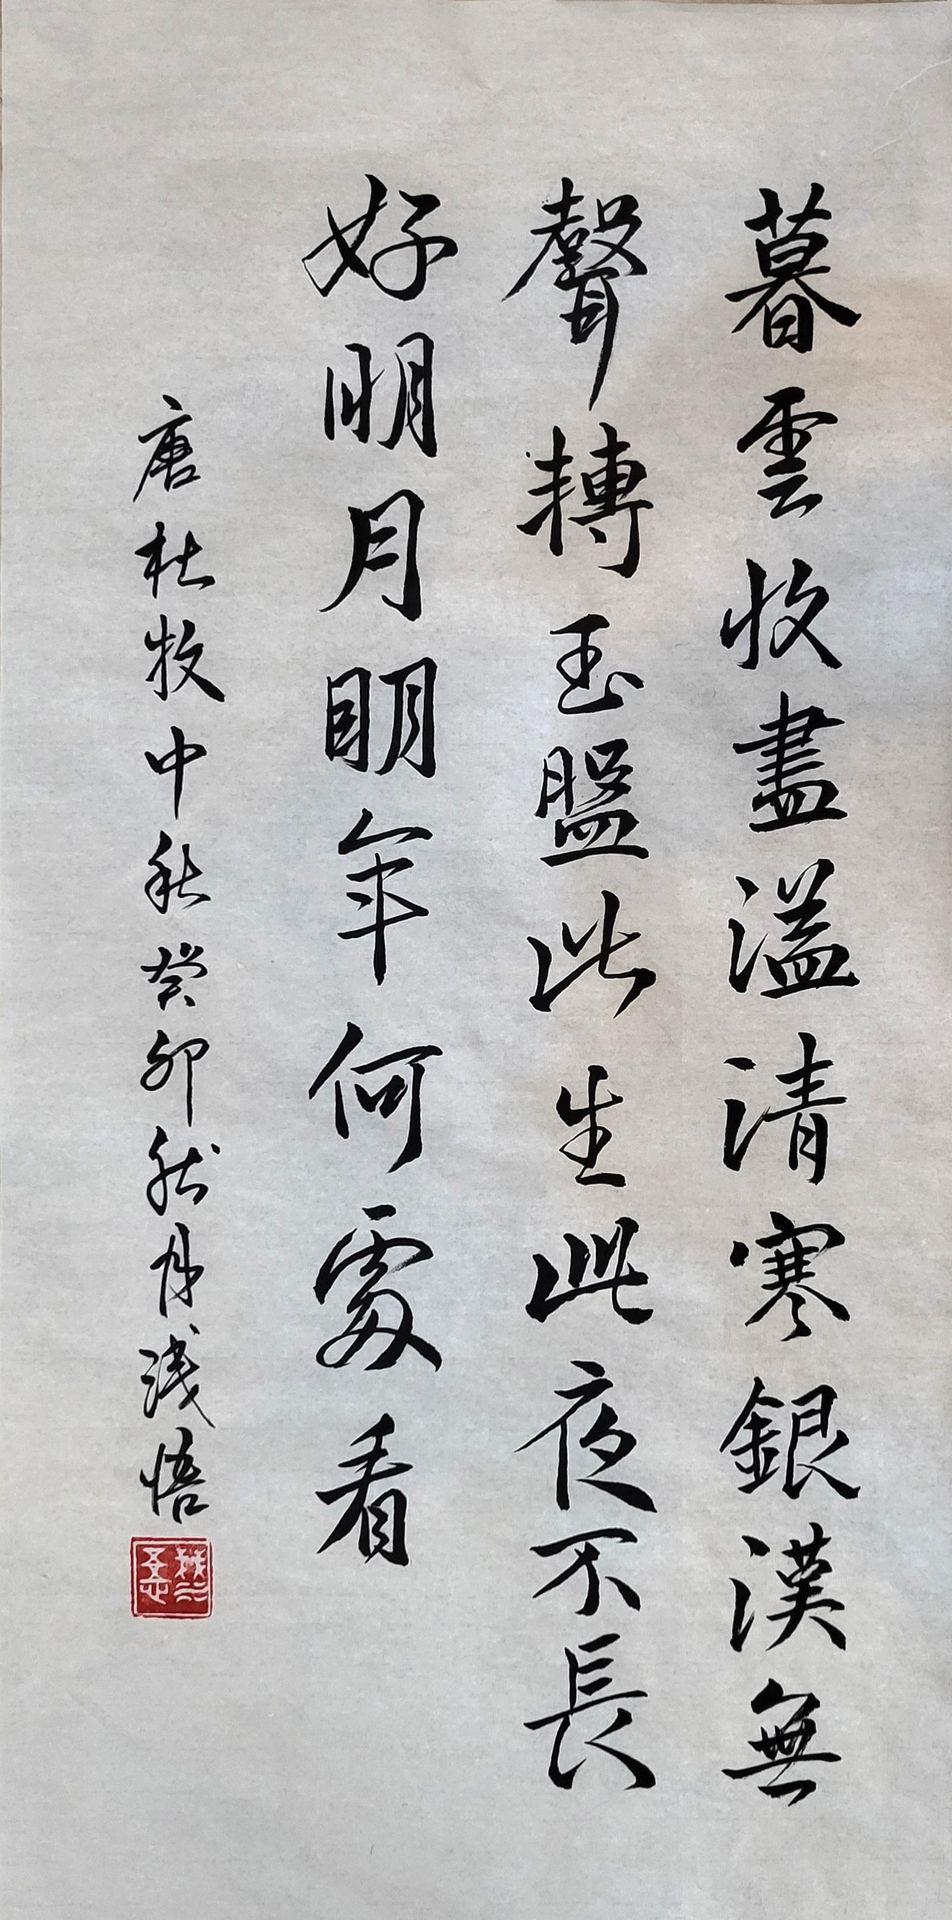 暮雲收盡溢清寒銀漢無
聲轉玉盤此生此夜不長
好明月明年何處看
唐杜牧中秋癸卯秋月淺悟